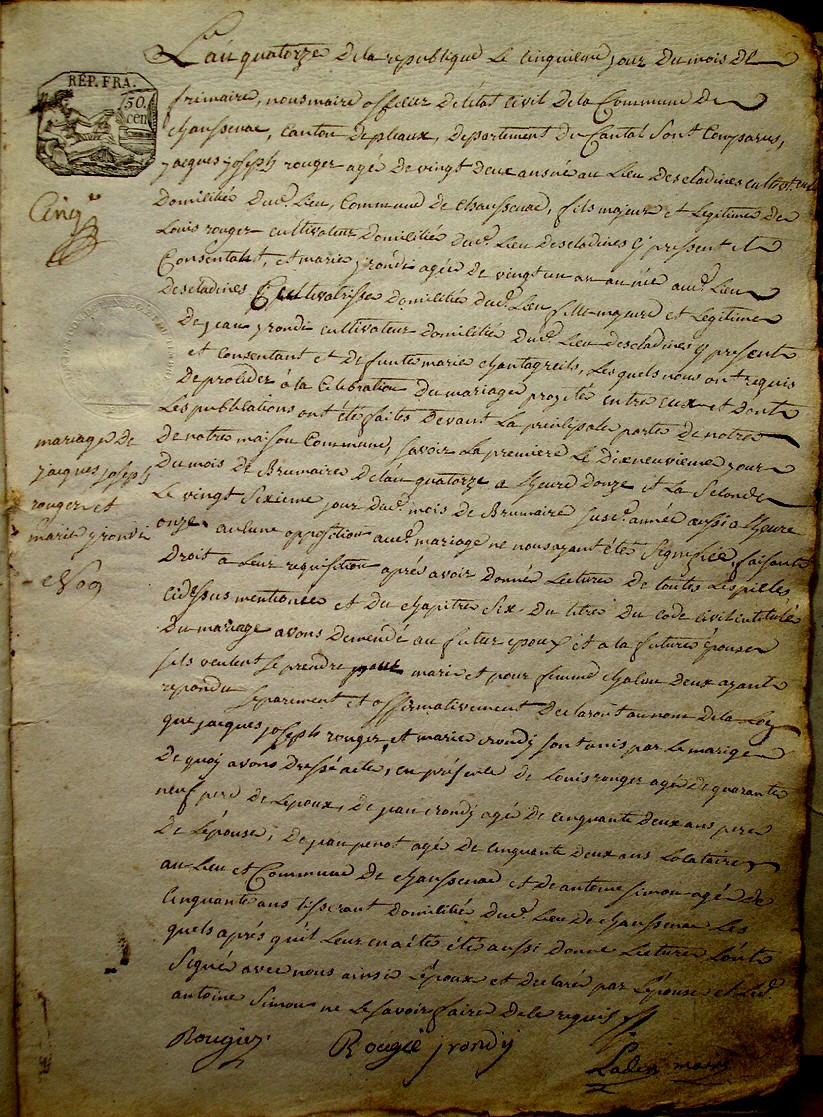 REP. FRA.
50.
cen
L'an quatorze de la republique le cinquieme jour du mois de
frimaire, nous maire officier de létat civil de la Commune de
chaussenac, canton de pleaux, departement du Cantal sont Comparus,
jacques joseph rouger agé de vingt deux ans né au Lieu descladines cultivateur
domicilié dud. Lieu, Commune de chaussenac, fils majeur et Legitime de
Louis rouger cultivateur domicilié dud. Lieu descladines y present et
Consentant, et marie jrondi agée de vingt un an née aud. Lieu
descladines Cultivatrisse domicilié dud. Lieu fille majeure et Legitime
De jean jrondi cultivateur domicilié dud. Lieu descladines y present
et Consentant et de funte marie chantagreils, Lesquels nous ont requis
De proceder à la Celebration du mariage projeté entre eux et dont
Les publications ont été faites devant La principale porte de notre
De notre maison Commune, savoir La premiere Le dixneuvieme jour
Du mois de Brumaire de lan quatorze a heure douze et La seconde
Le vingt sixieme jour dud. mois de Brumaire susd. année aussi a heure
onze. aucune opposition aud. mariage ne nous ayant été signifiée, faisant
Droit a Leur requisition apres avoir donné Lecture de toutes Les pieces
cidessus mentionée et du chapitre six du titre du code civil intitulé
Du mariage avons demendé au futur epoux et a la future épouse
sils veulent se prendre pour mari et pour femme chacun deux ayant
repondu separement et affirmativement declaront au nom de la Loy
que jacques joseph rouger, et marie jrondy sont unis par le marige
De quoy avons dressé acte, en présence de Louis rouger agé de quarante
neuf pere de Lépoux, de jean jrondy agé de cinquante deux ans pere
de Lépouse, de jean penot agé de cinquante deux ans Locataire
au Lieu et Commune de chaussenac et de antoine simon agé de
Cinquante ans tisserant domicilié dud. Lieu de chaussenac Les
quels aprés quil Leur en a été été aussi donné Lecture Lont
Signé avec nous ainsi Lépoux et declaré par Lépouse et Led.
antoine Simon ne Le savoir faire de ce requis
Rougier Rougié jrondij
maire
Cinq
mariage de
jacques joseph
rouger et
marie jrondi